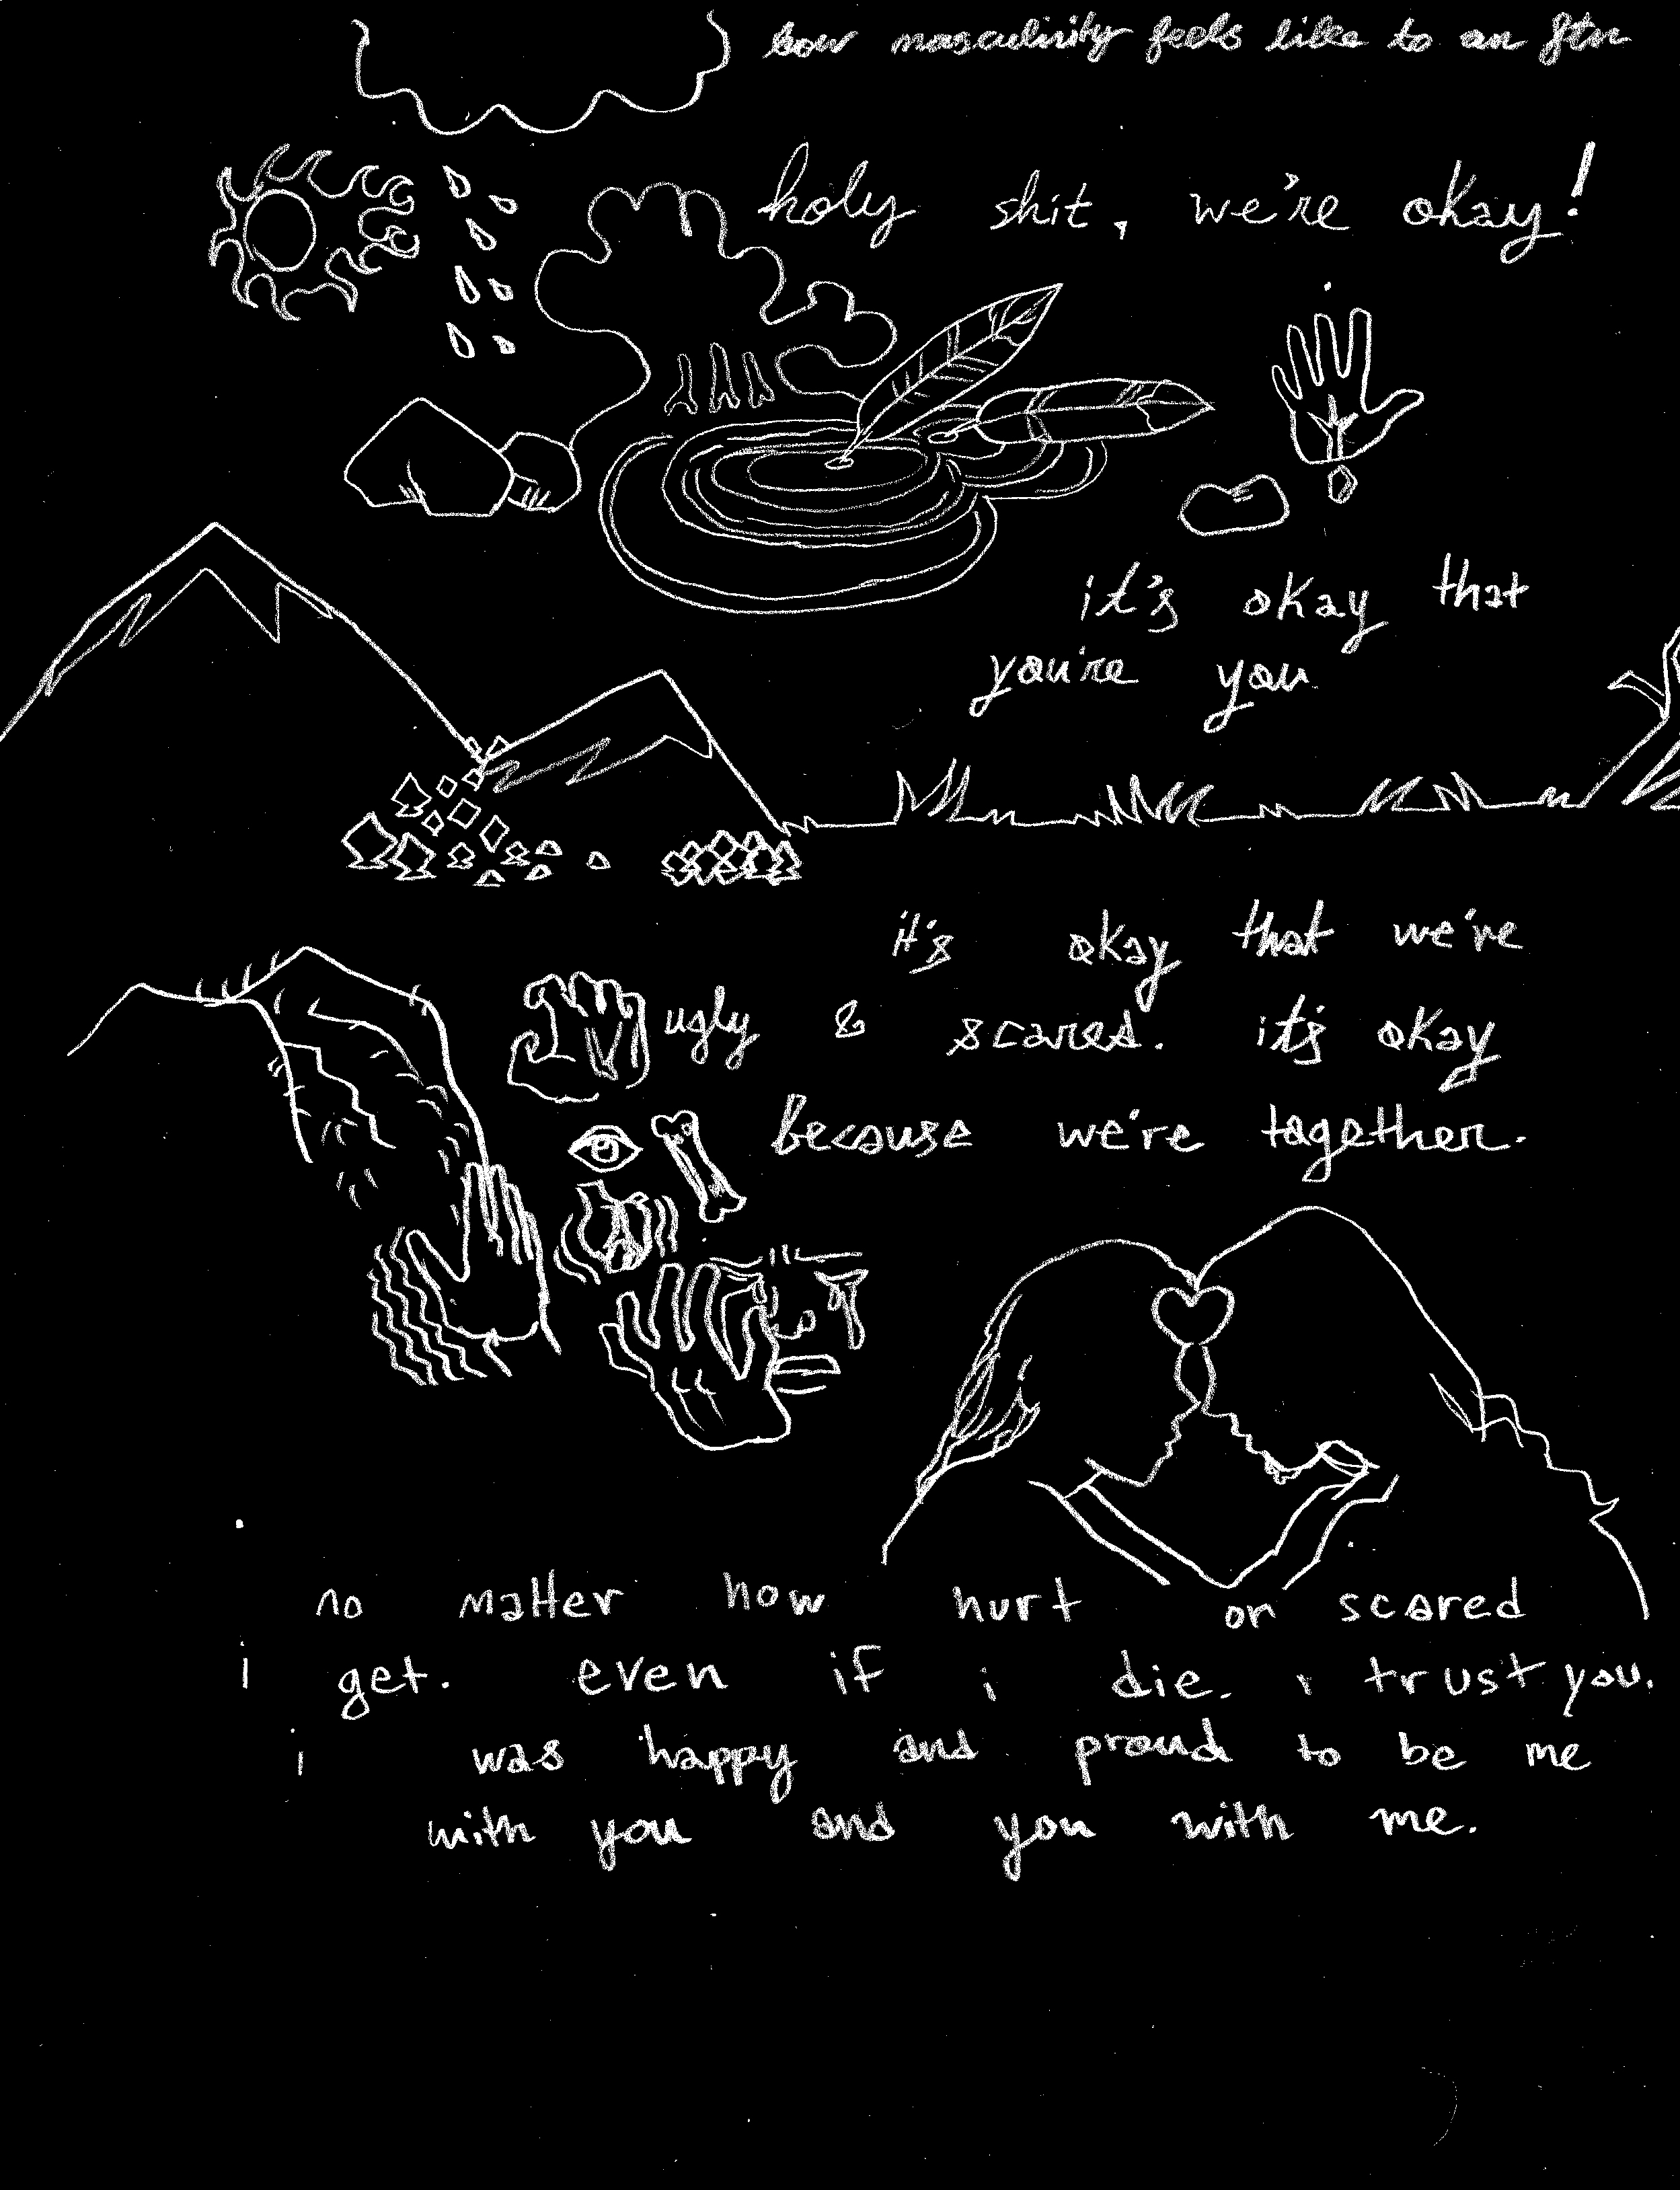 how masculinity feels like to an ftm
holy shit, we're okay!
it's okay that
you're you
it's okay that we're
ugly & scared. it's okay
because we're together.
no matter how hurt or scared
i get. even if i die. i trust you.
i was happy and proud to be me
with you and you with me.